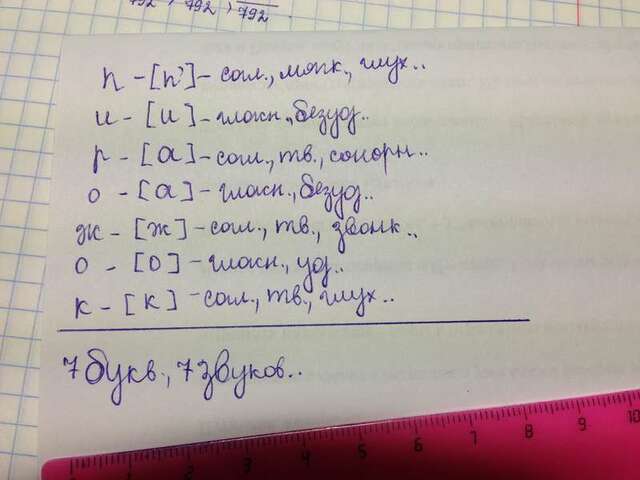 792 , 792 , 792
п - [п'] - согл., мягк., глух..
и - [и] - гласн., безуд..
р - [а] - согл., тв., сонорн..
о - [а] - гласн., безуд..
ж - [ж] - согл., тв., звонк..
о - [о] - гласн., уд..
к - [к] - согл., тв., глух..
7 букв., 7 звуков..
1 2 3 4 5 6 7 8 9 10